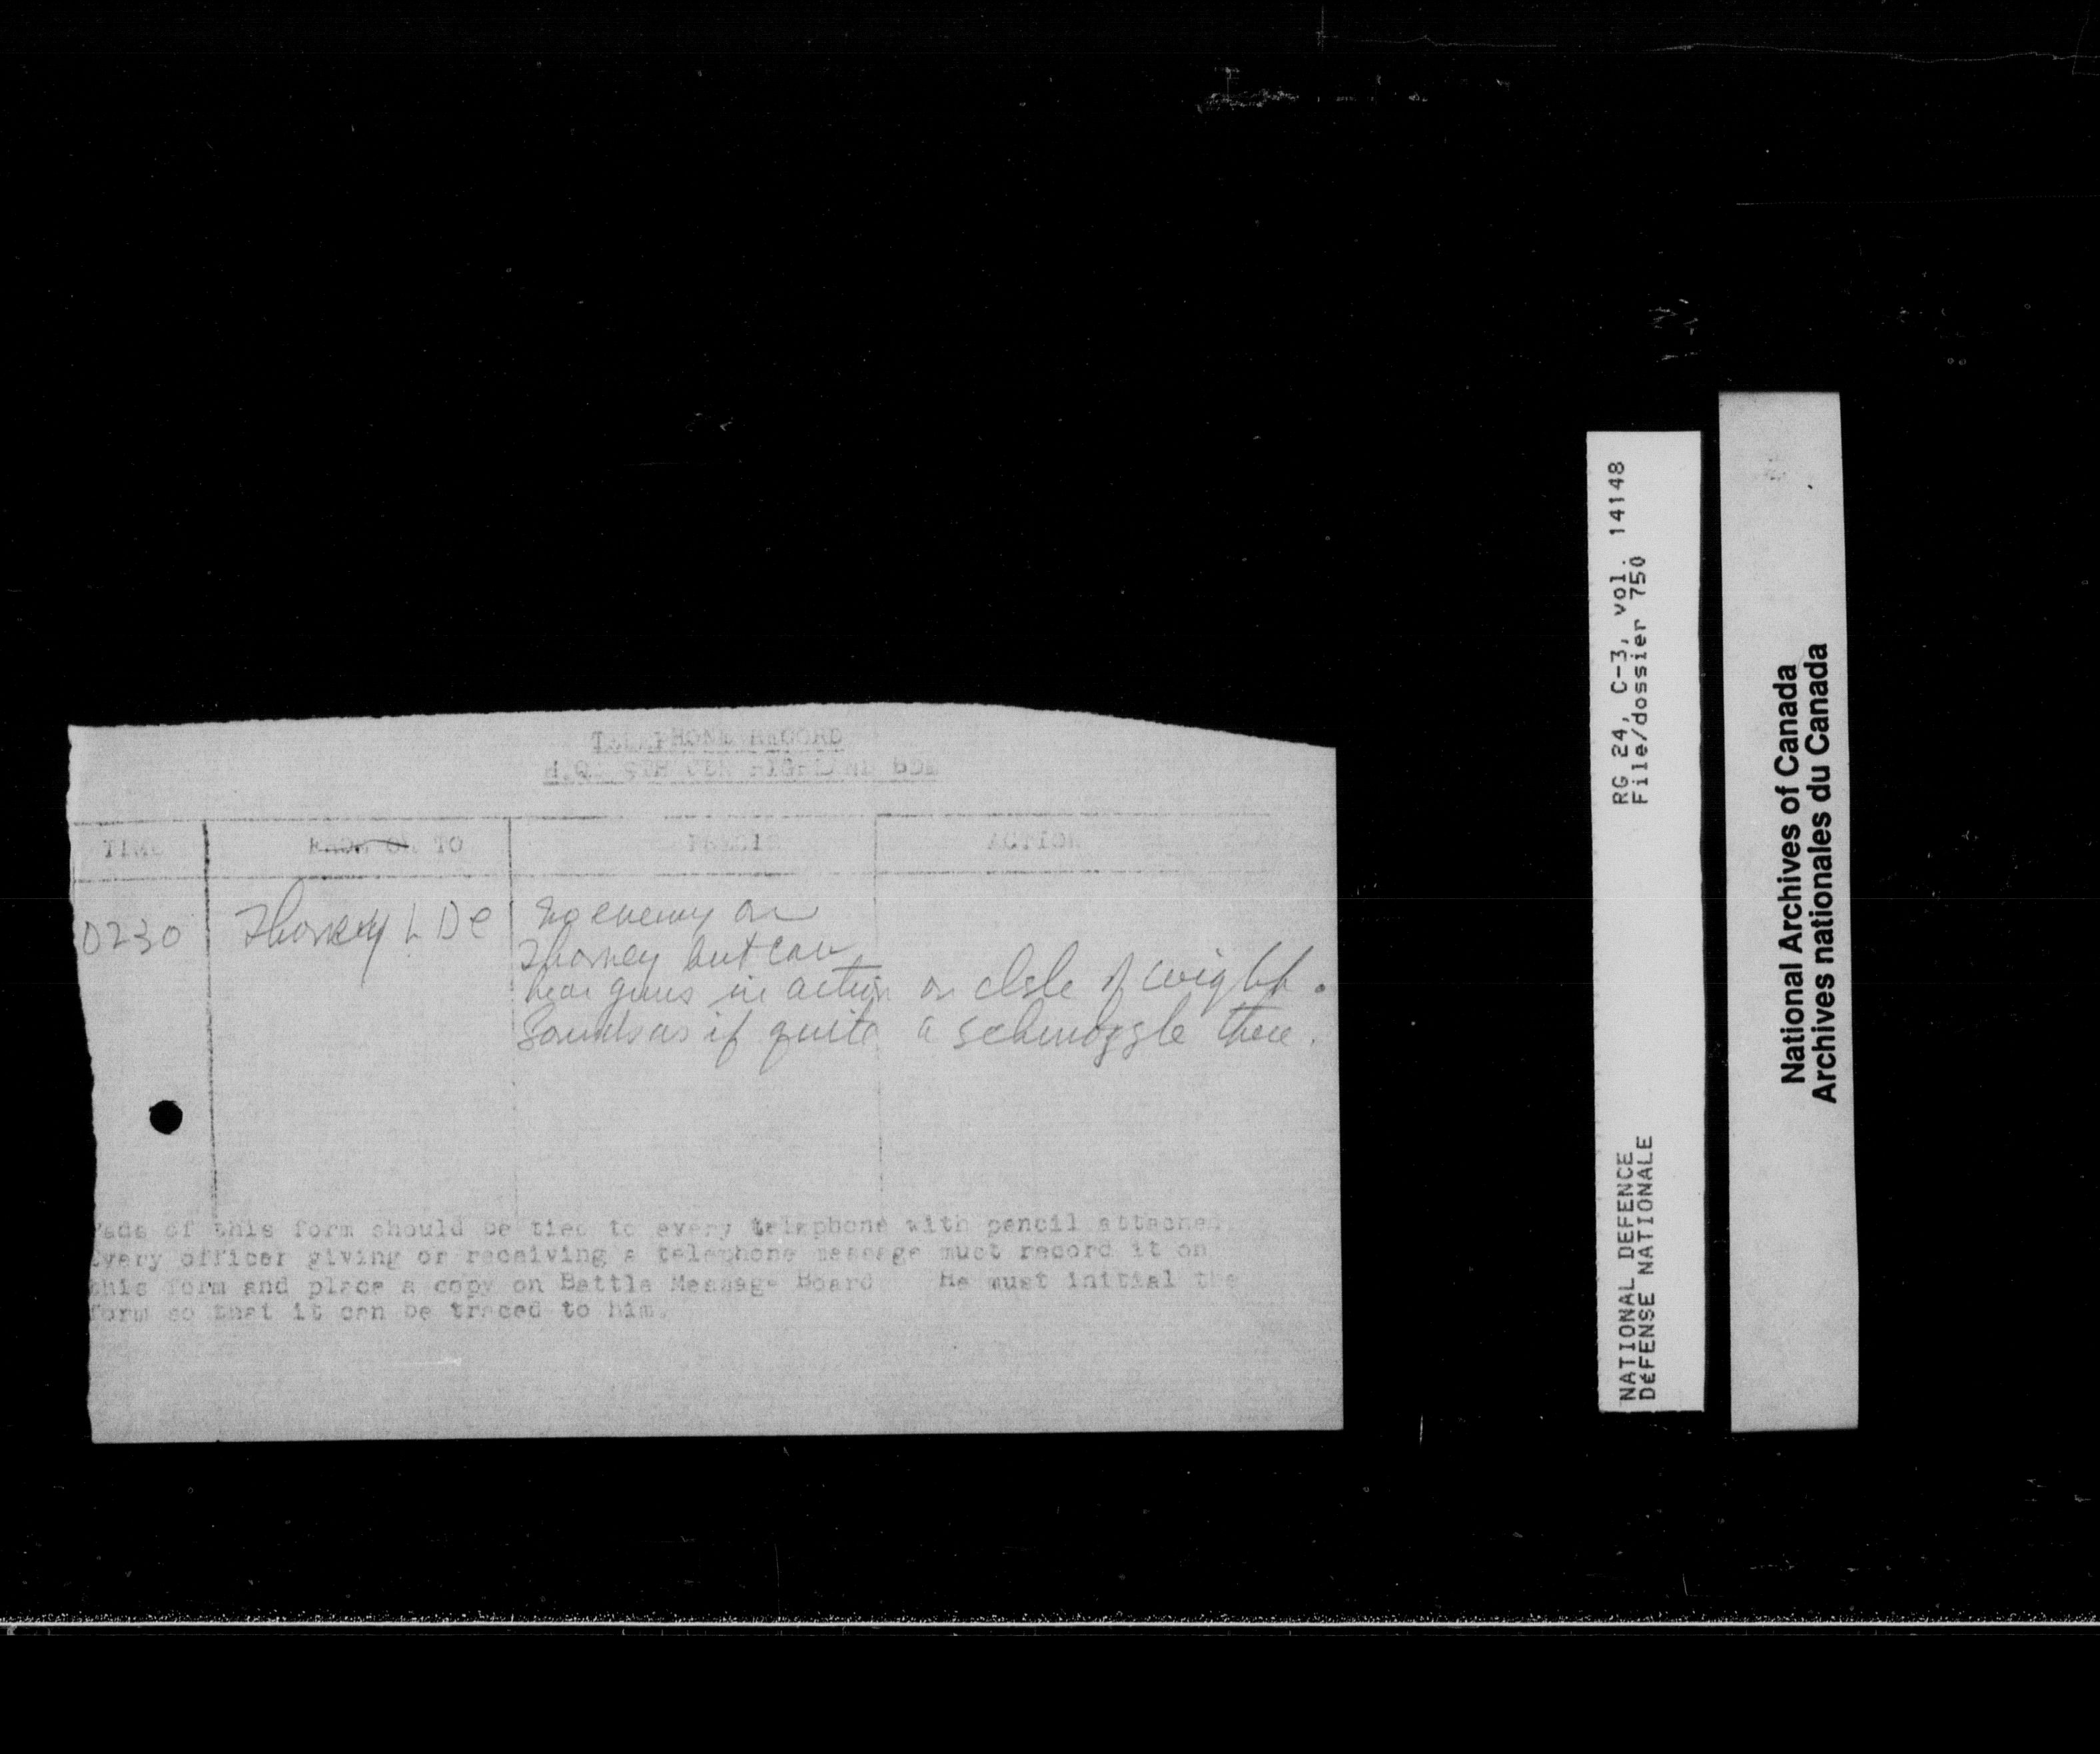 TELEPHONE RECORD
H.Q. 9TH CDN HIGHLAND BDE
TIME FROM OR TO PRECIS ACTION
0230 Thorney L D C No enemy on
Thorney but can
hear guns in action on Isle of Wight.
Sounds as if quite a schmoggle there.
Pads of this form should be tied to every telephone with pencil attached.
Every officer giving or receiving a telephone message must record it on
this form and place a copy on Battle Message Board He must initial the
form so that it can be traced to him.
RG 24, C-3, vol. 14148
File/dossier 750
NATIONAL DEFENCE
DÉFENSE NATIONALE
National Archives of Canada
Archives nationales du Canada